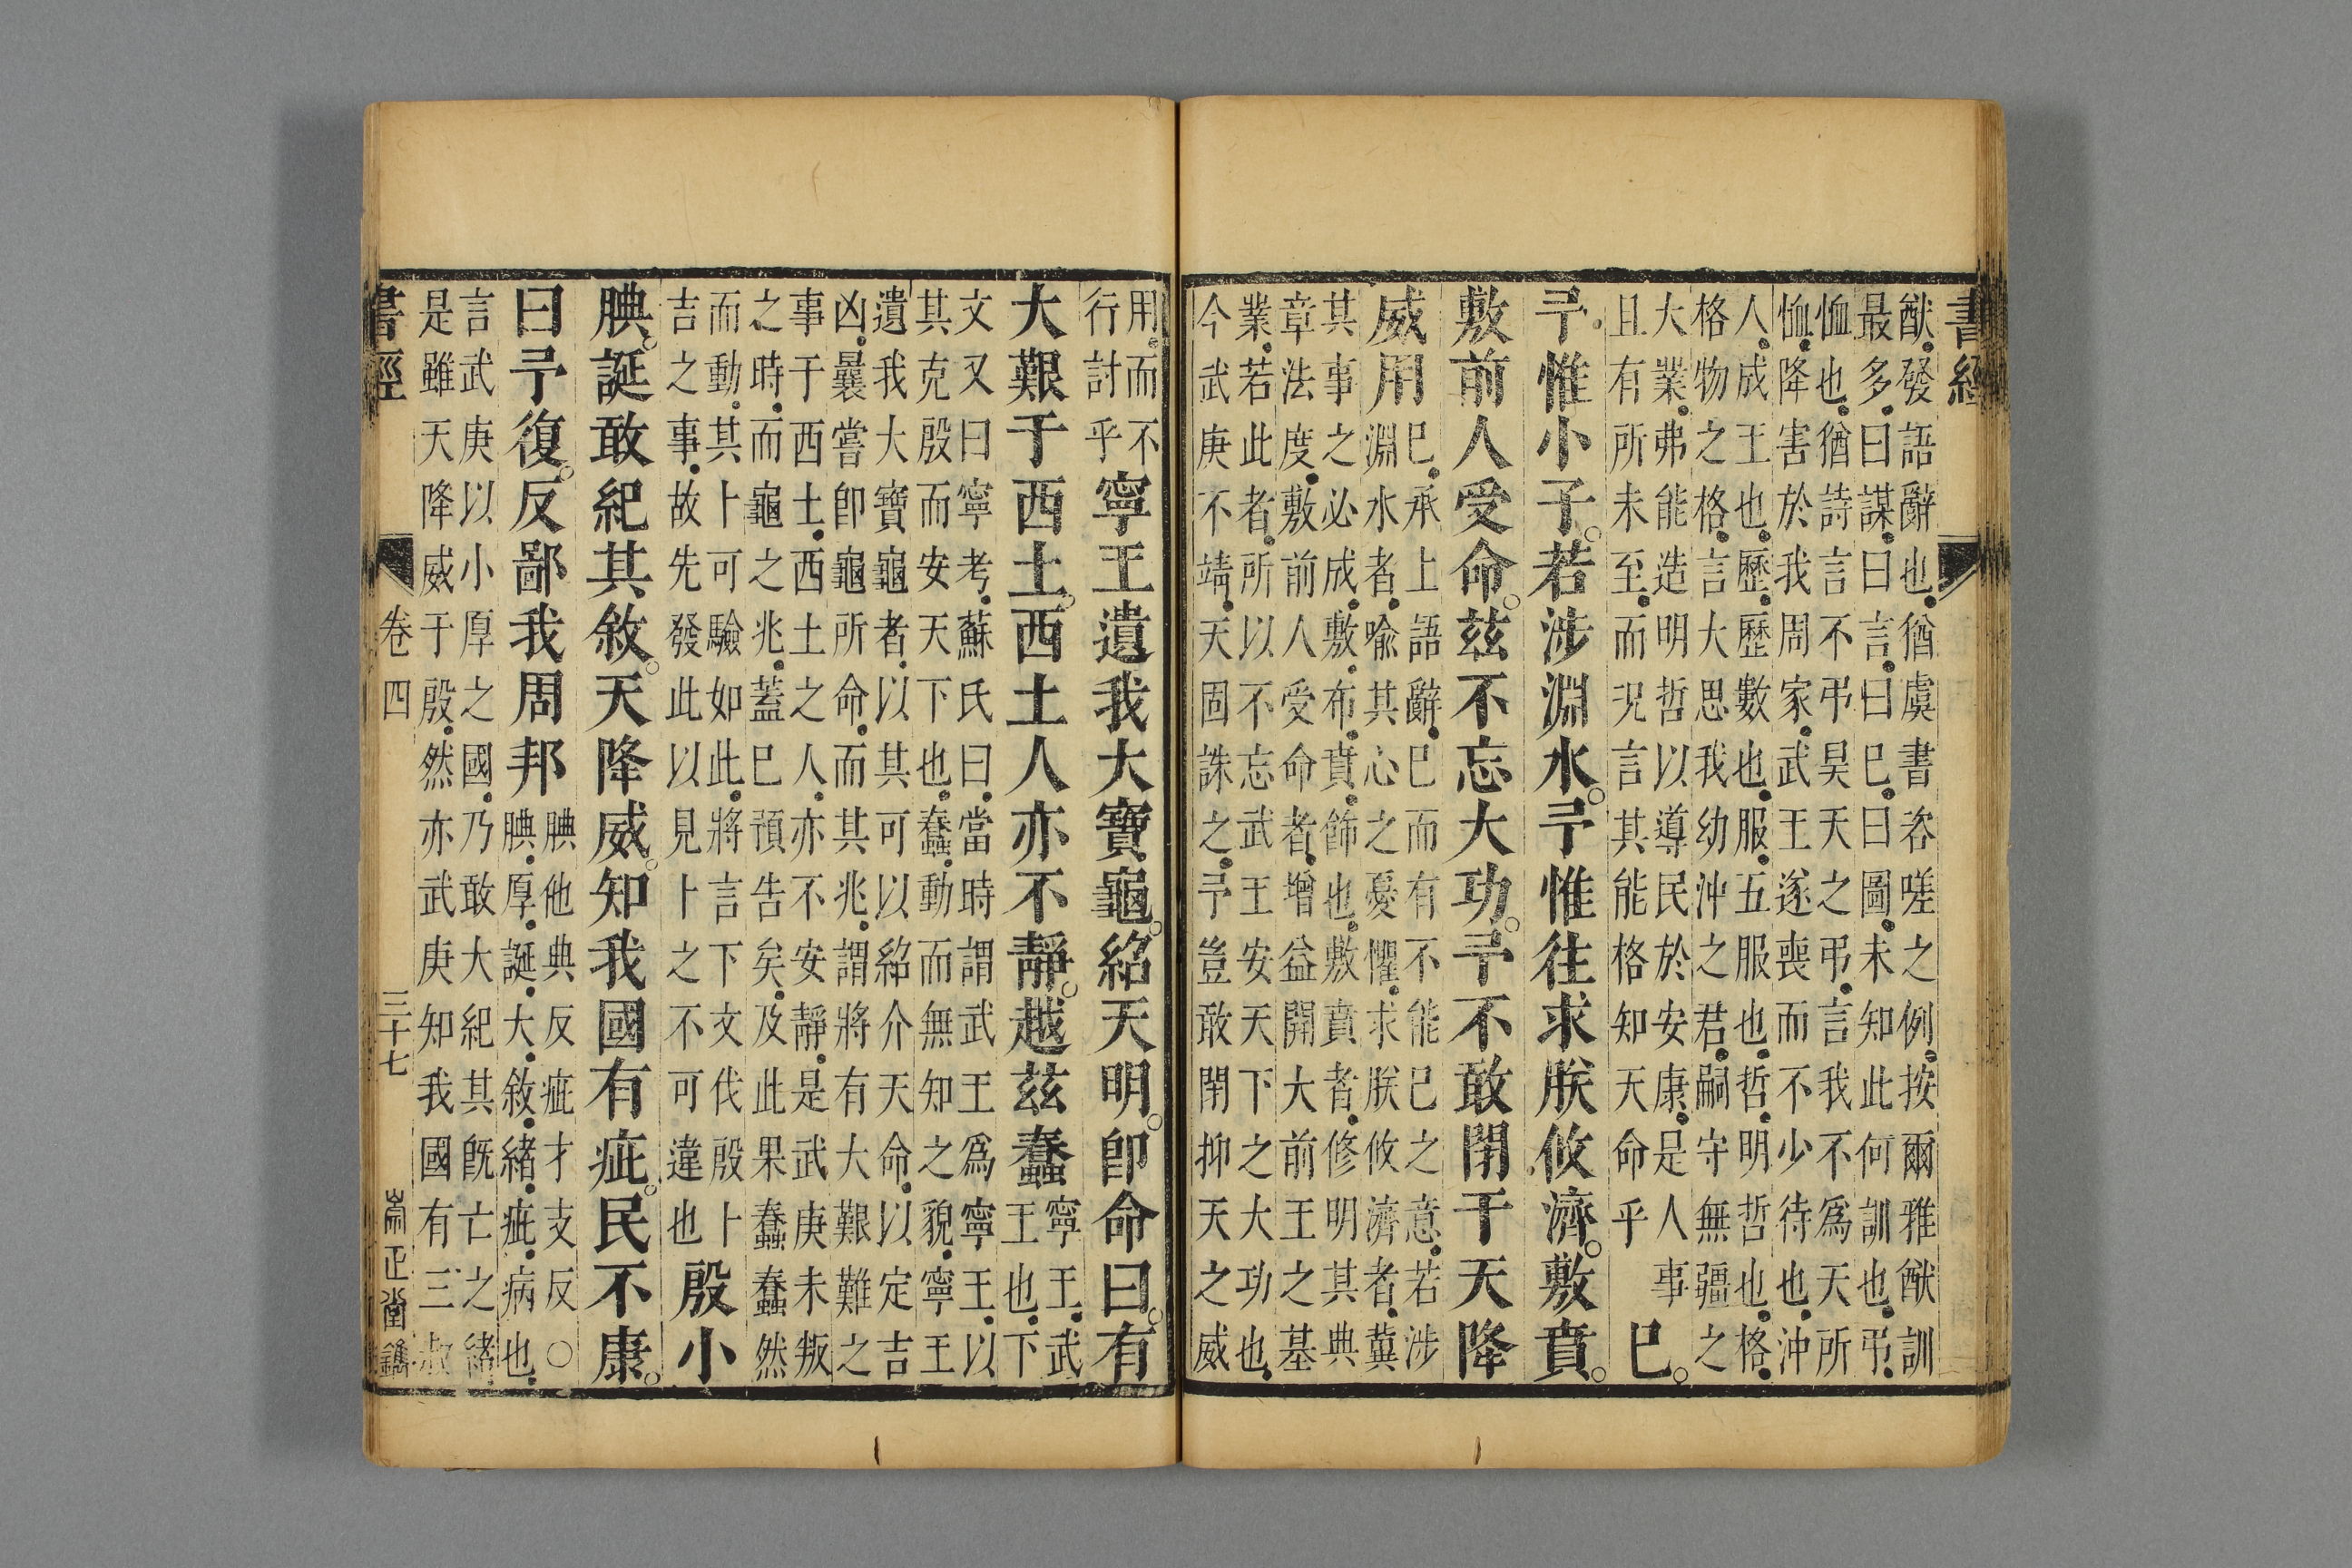 書經
猷發語辭也猶虞書咨嗟之例按爾雅猷訓
最多曰謀曰言曰已曰圖未知此何訓也弔
恤也猶詩言不弔昊天之弔言我不爲天所
恤降害於我周家武王遂喪而不少待也沖
人成王也歷歷數也服五服也哲明哲也格
格物之格言大思我幼沖之君嗣守無疆之
大業弗能造明哲以導民於安康是人事
且有所未至而況言其能格知天命乎
已
予惟小子若涉淵水予惟往求朕攸濟敷賁
敷前人受命茲不忘大功予不敢閉于天降
威用
已承上語辭已而有不能已之意若涉
淵水者喩其心之憂懼求朕攸濟者冀
其事之必成敷布賁飾也敷賁者修明其典
章法度敷前人受命者增益開大前王之基
業若此者所以不忘武王安天下之大功也
今武庚不靖天固誅之予豈敢閉抑天之威
用而不
行討乎
寧王遺我大寶龜紹天明卽命曰有
大艱于西土西土人亦不靜越茲蠢
寧王武
王也下
文又曰寧考蘇氏曰當時謂武王爲寧王以
其克殷而安天下也蠢動而無知之貌寧王
遺我大寶龜者以其可以紹介天命以定吉
凶曩嘗卽龜所命而其兆謂將有大艱難之
事于西土西土之人亦不安靜是武庚未叛
之時而龜之兆蓋已預告矣及此果蠢蠢然
而動其卜可驗如此將言下文伐殷卜
吉之事故先發此以見卜之不可違也
殷小
腆誕敢紀其敘天降威知我國有疵民不康
曰予復反鄙我周邦
腆他典反疵才支反○
腆厚誕大敘緒疵病也
言武庚以小厚之國乃敢大紀其旣亡之緒
是雖天降威于殷然亦武庚知我國有三叔
書經
卷四
三十七
崇正堂鐫